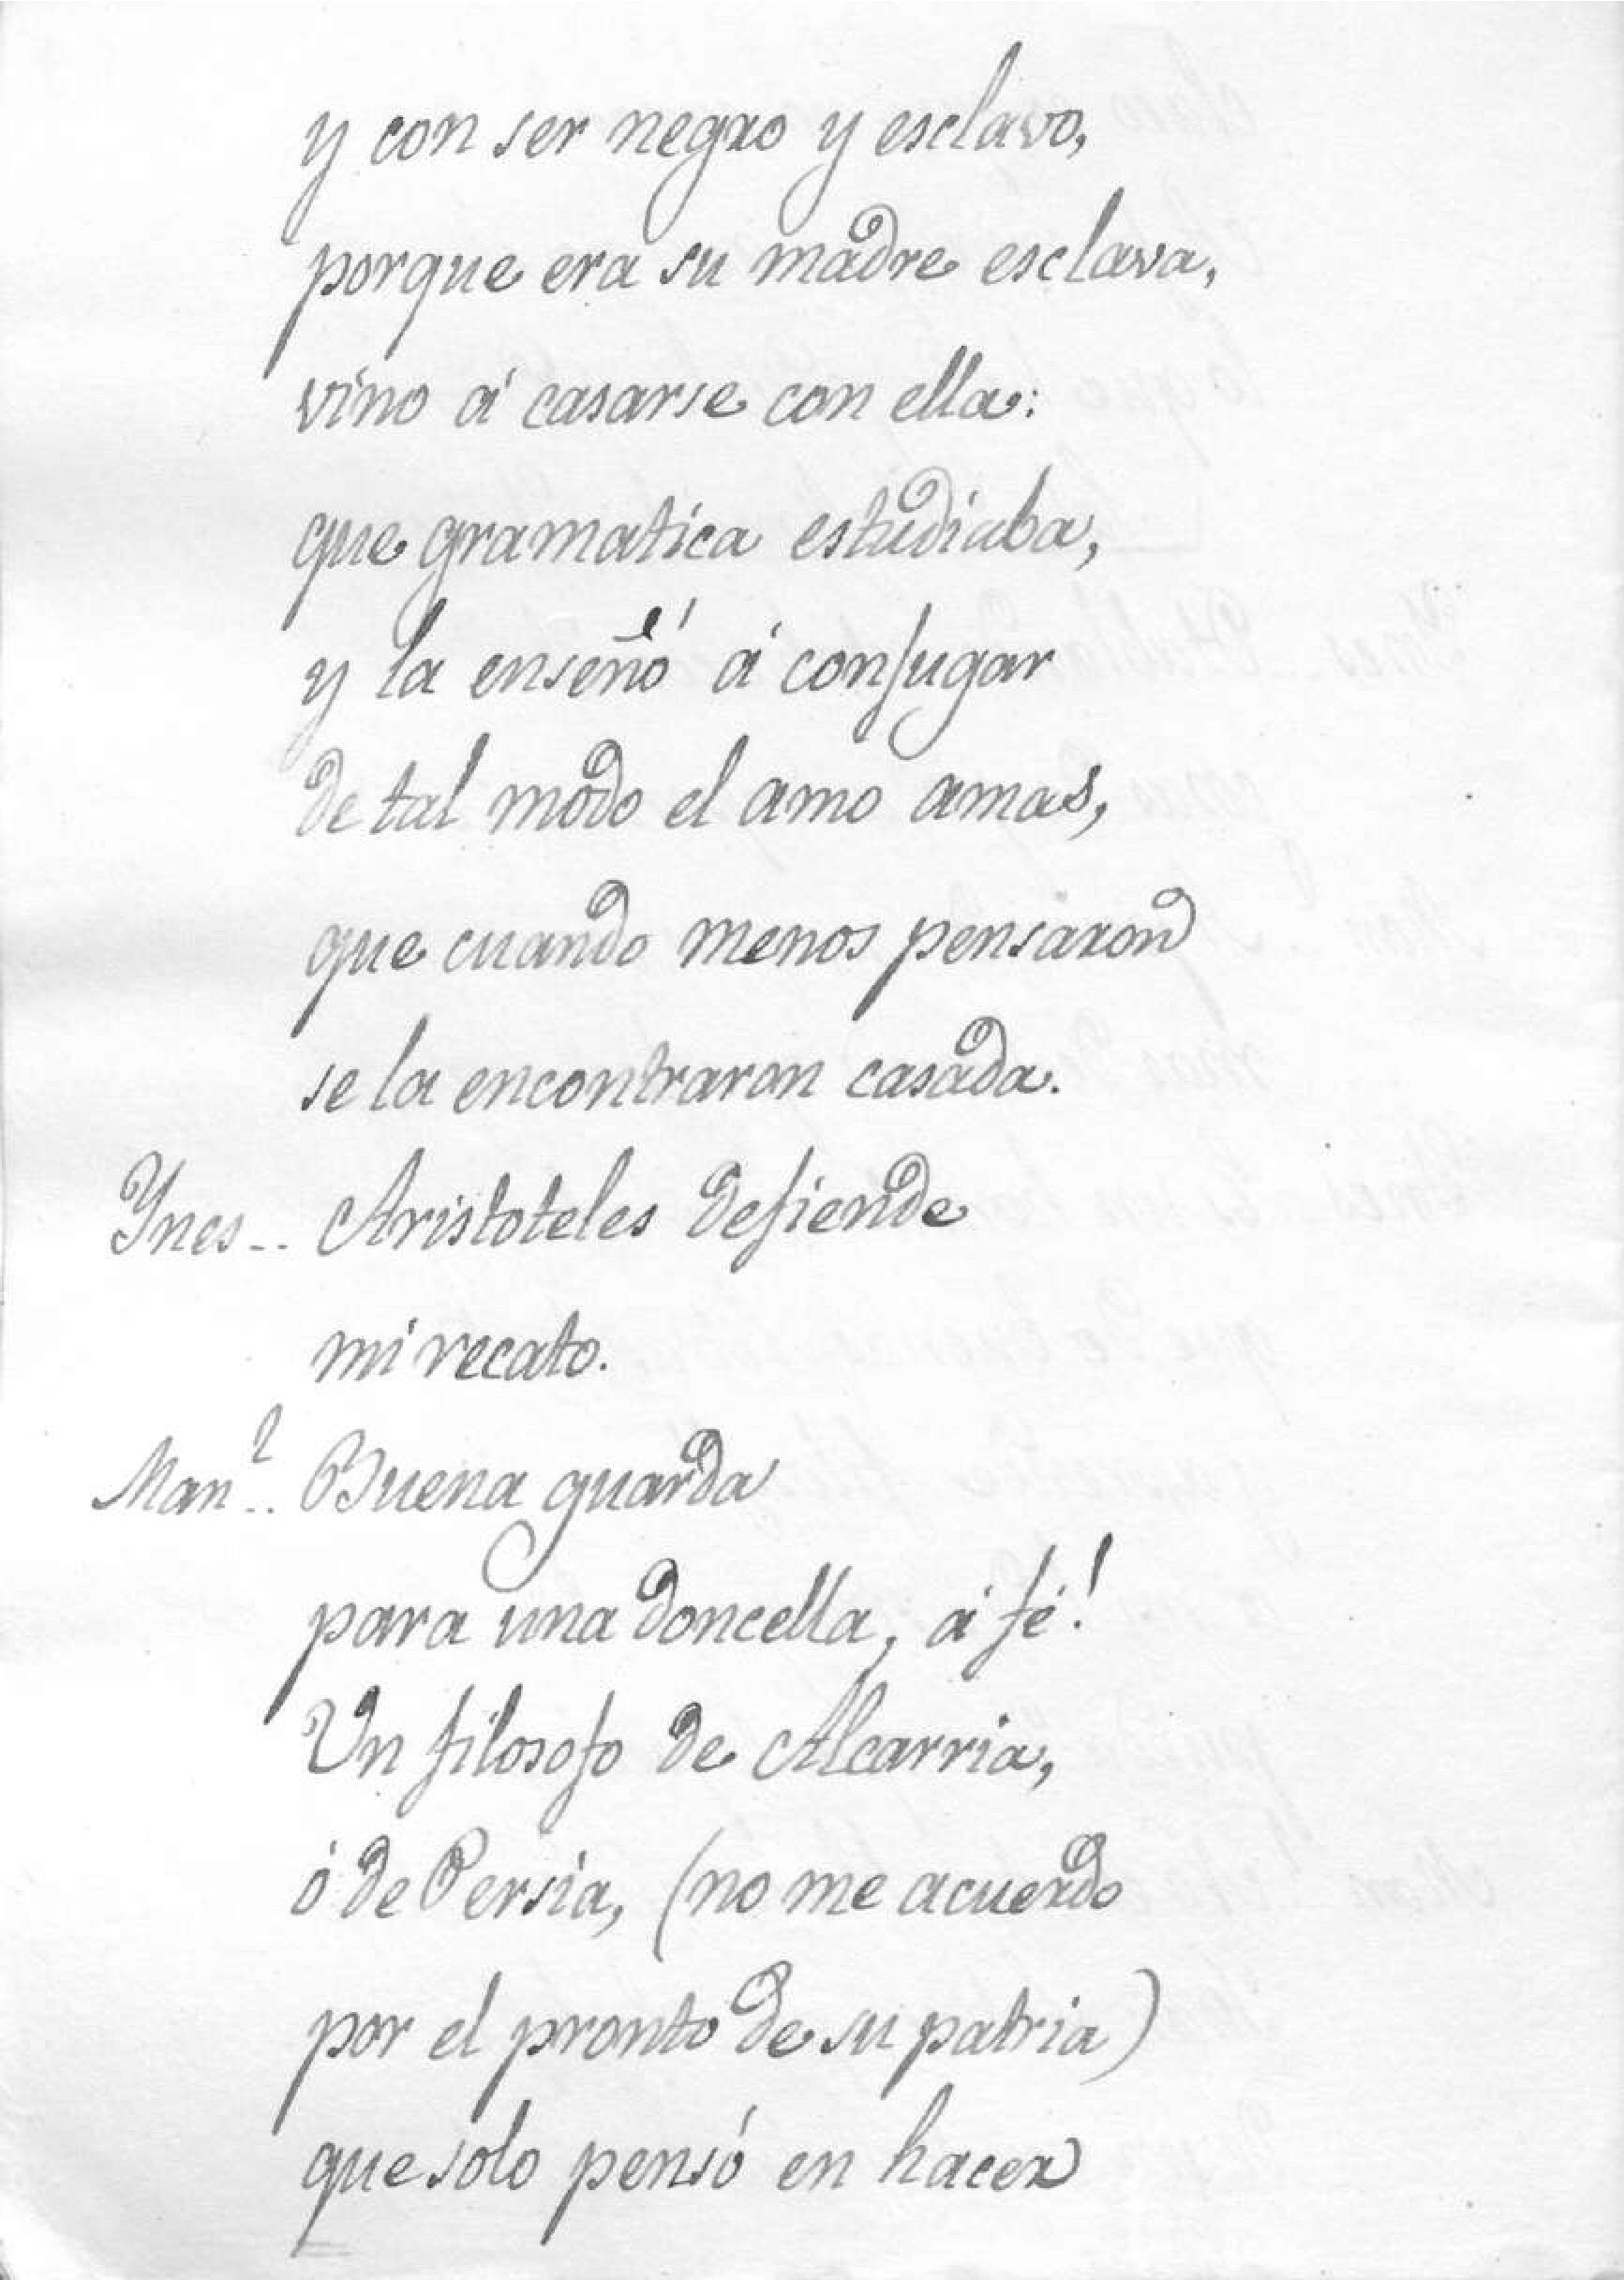 y con ser negro y esclavo,
porque era su madre esclava,
vino á casarse con ella:
que gramatica estudiaba,
y la enseñó á conjugar
de tal modo el amo amas,
que cuando menos pensaron
se la encontraron casada.
Ynes.. Aristoteles defiende
mi recato.
Man.l.. Buena guarda
para una doncella, á fé!
Un filosofo de Alcarria,
ó de Persia, (no me acuerdo
por el pronto de su patria)
que solo pensó en hacer